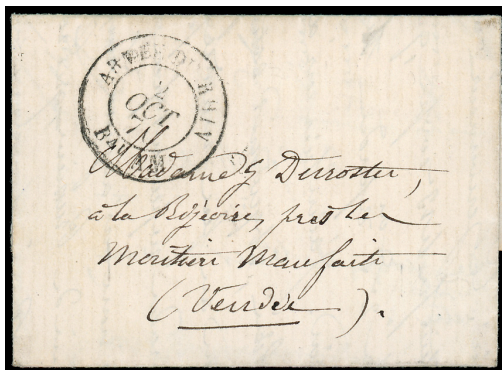 ARMÉE DU RHIN
2
OCT
71
Bau AM
Madame G Durostu,
à la Bijoire, près les
Moutiers Maufaits
(Vendée).